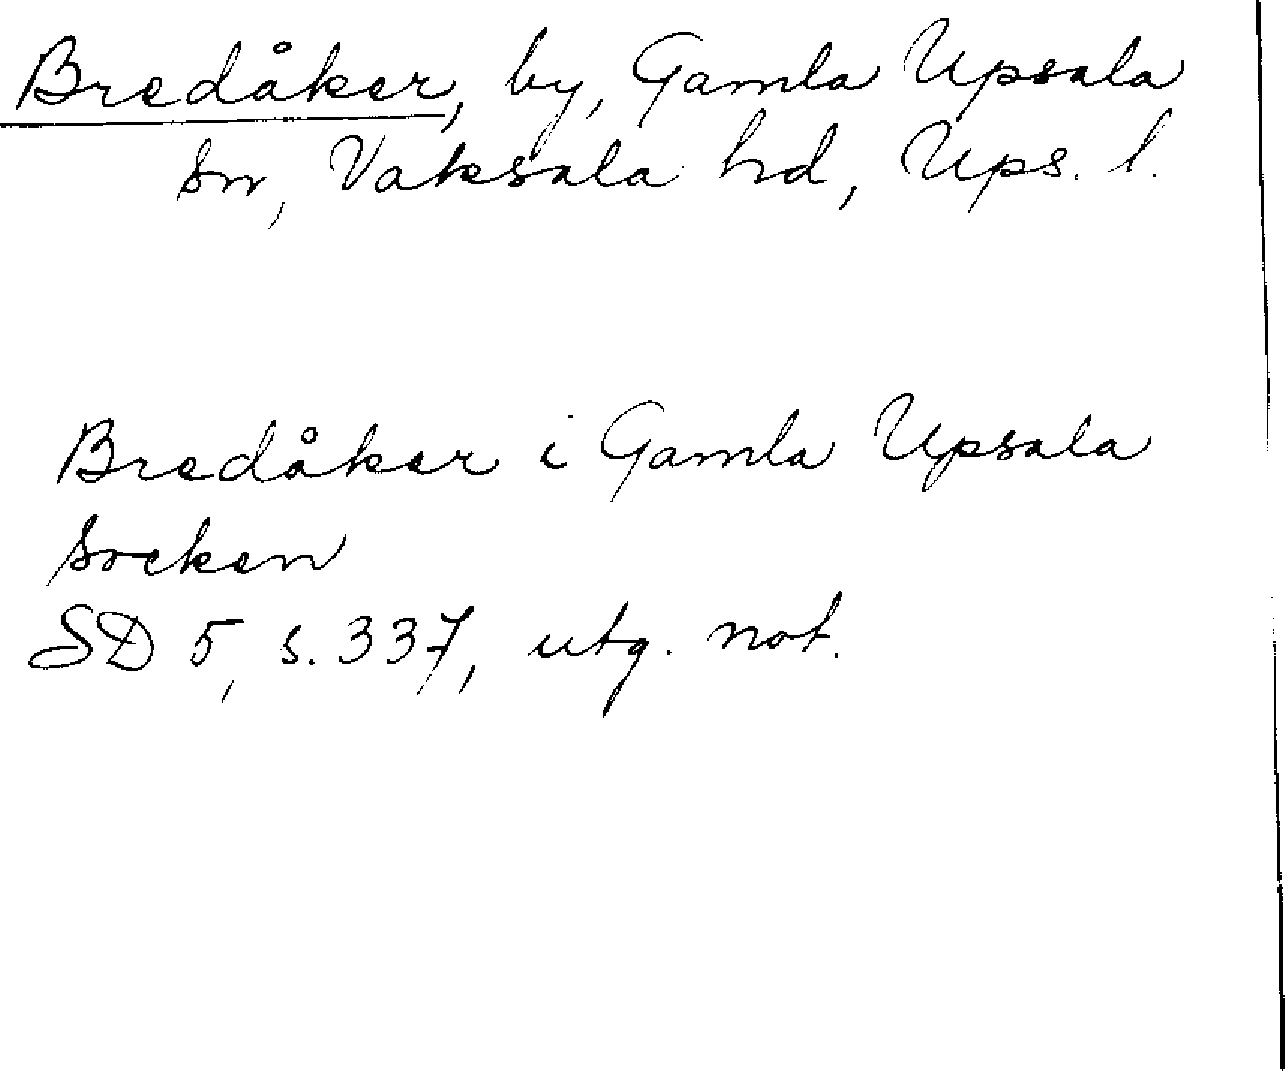 Bredåker, by, Gamla Upsala
sn, Vaksala hd, Ups. l.
Bredåker i Gamla Upsala
socken
SD 5, s. 337, utg. not.